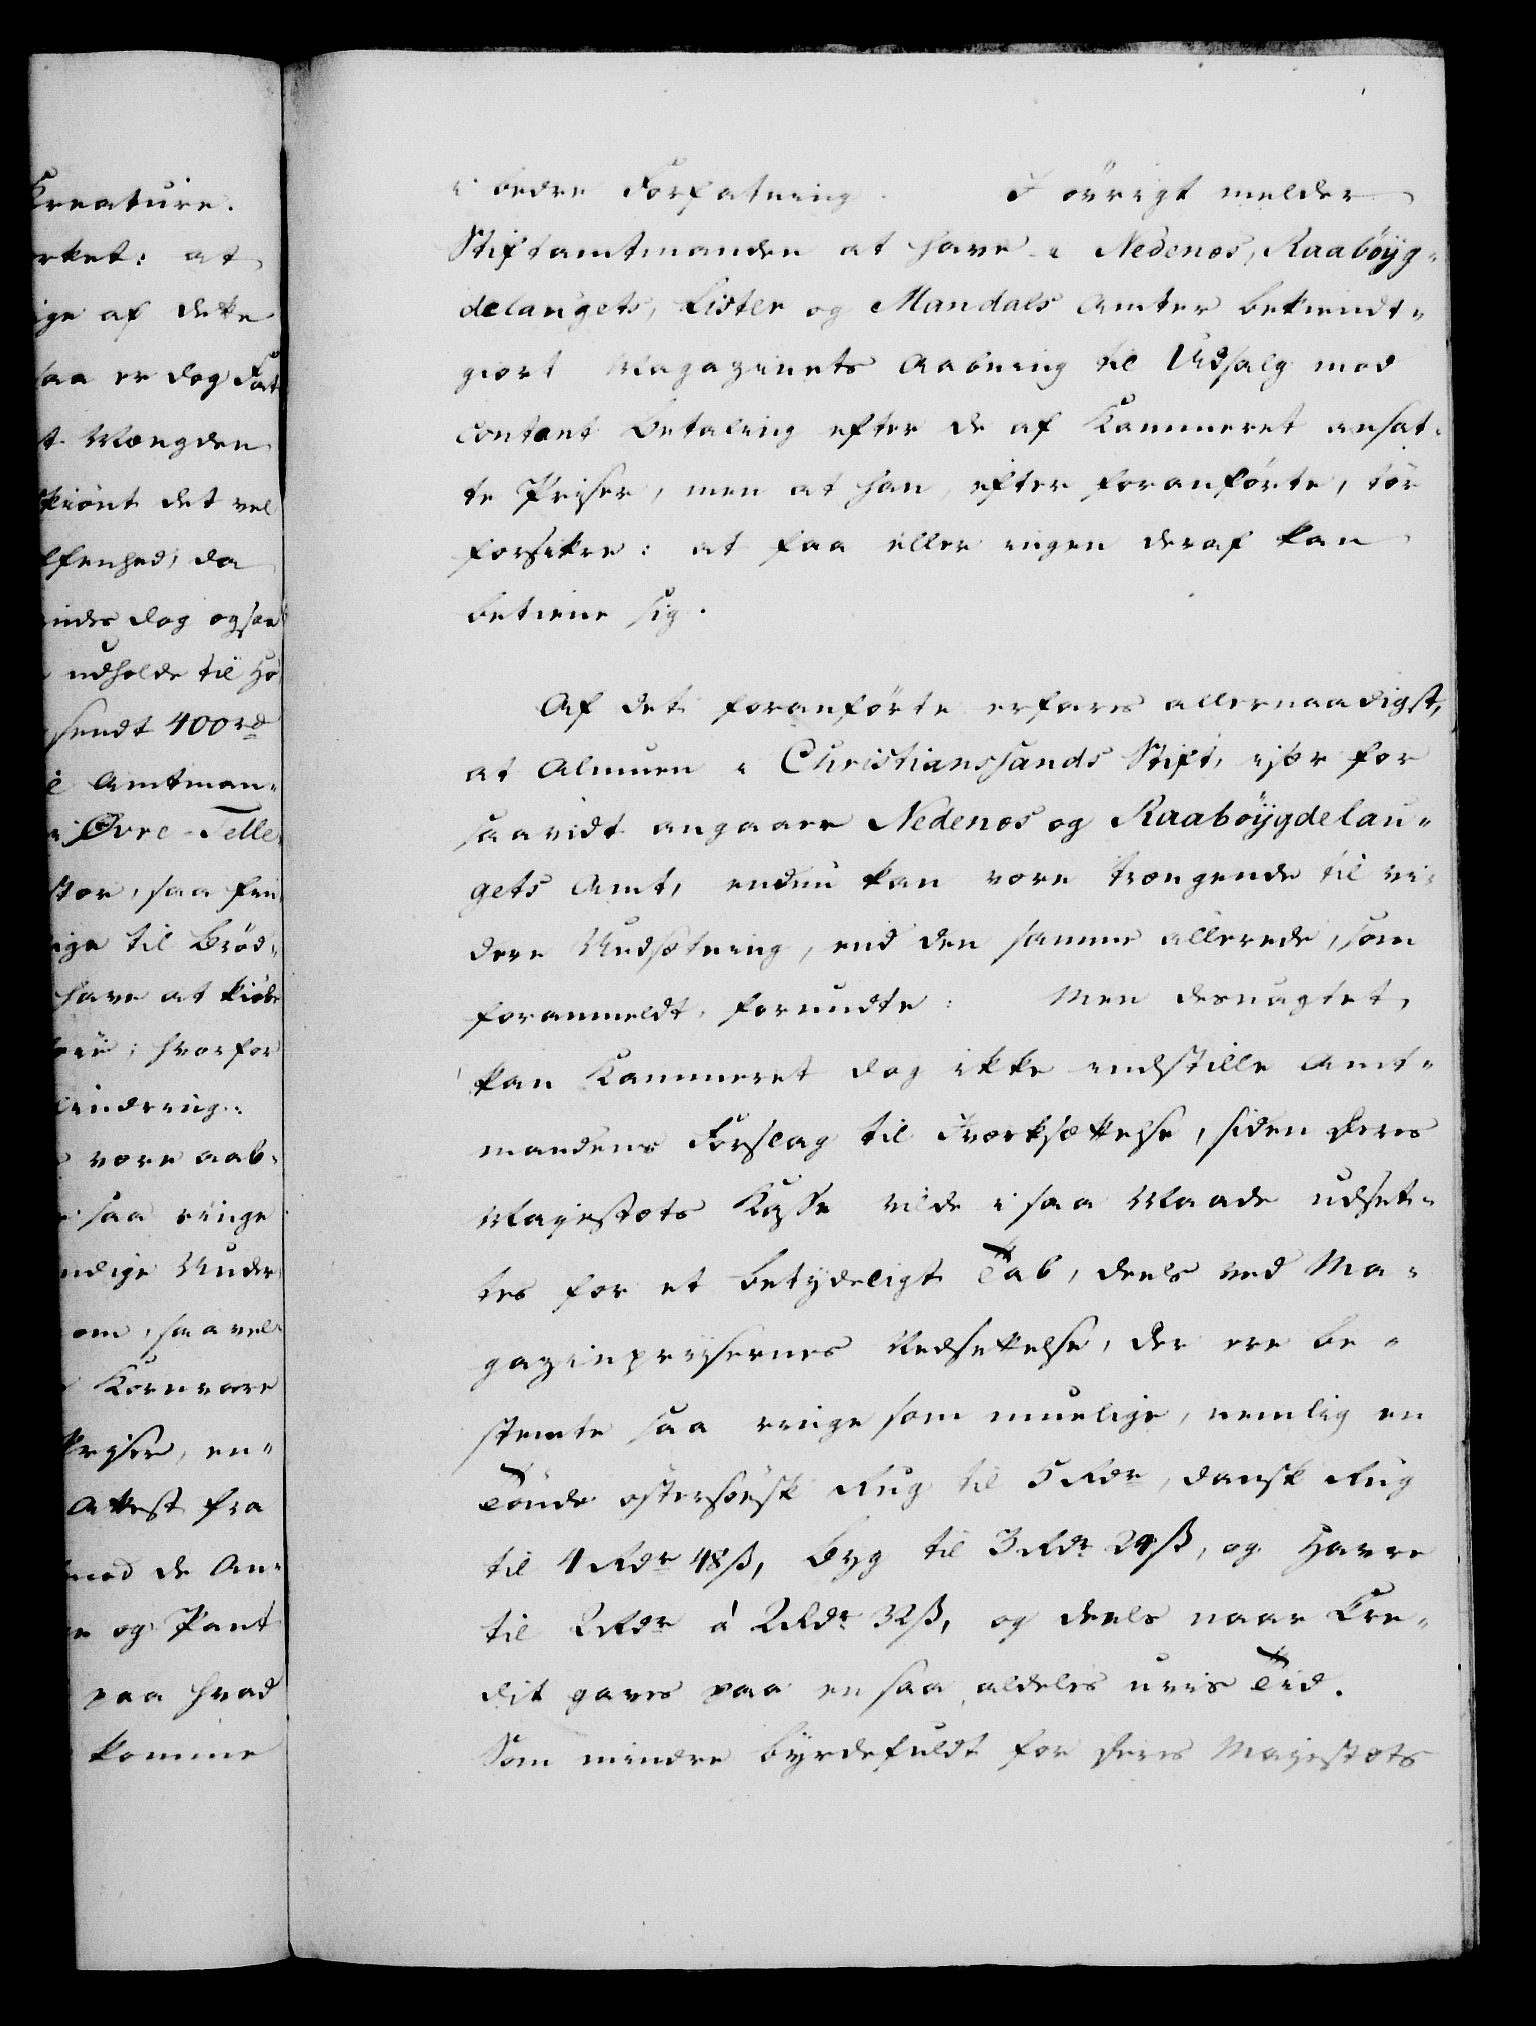 Kreature.
rket: at
ige af dette
saa er dog Fat
t Mængden
skiönt det vel
lsenhed, da
indes dog ogsaa
udholde til Hö
sendt 400 rd
Amtman-
i Øvre-Telle
stor, saa
ige til Bröd-
have at kiöbe
hvorfor
lindring.
være aab-
saa ringe
ndige Under
om, saavel
Kornvare
Priser, en-
Attest fra
mod de An-
e og Pant
paa hvad
komme
i bedre Forfatning. I övrigt melder
Stiftamtmanden at have i Nedenes, Raaböyg-
delaugets, Lister og Mandals Amter bekiendt-
giort Magazinets Aabning til Udsalg mod
contant Betaling efter de af Kammeret ansat-
te Priser, men at han, efter foranförte, tör
forsikre: at faa eller ingen deraf kan
betiene sig.
Af det foranförte erfares allernaadigst,
at Almuen i Christianssands Stift, især for
saavidt angaaer Nedenes og Raaböygdelau-
gets Amt, endnu kan være trængende til vi-
dere Undsætning, end den samme allerede, som
foranmeldt, forundte: Men desuagtet,
kan Kammeret dog ikke indstille Amt-
mandens Forslag til Iværksættelse, siden Deres
Majestæts Kasse vilde i saa Maade udsæt-
tes for et betydeligt Tab, deels ved Ma-
gazinpriisernes Nedsettelse, der ere be-
stemte saa ringe som muelige, nemlig en
Tönde östersöisk Rug til 5 Rdr, dansk Rug
til 4 Rdr 48 ß, Byg til 3 Rdr 24 ß, og Havre
til 2 Rdr à 2 Rdr 32 ß, og deels naar Cre-
dit gaves paa en saa aldeles uvis Tid.
Som mindre byrdefuldt for Deres Majestæts